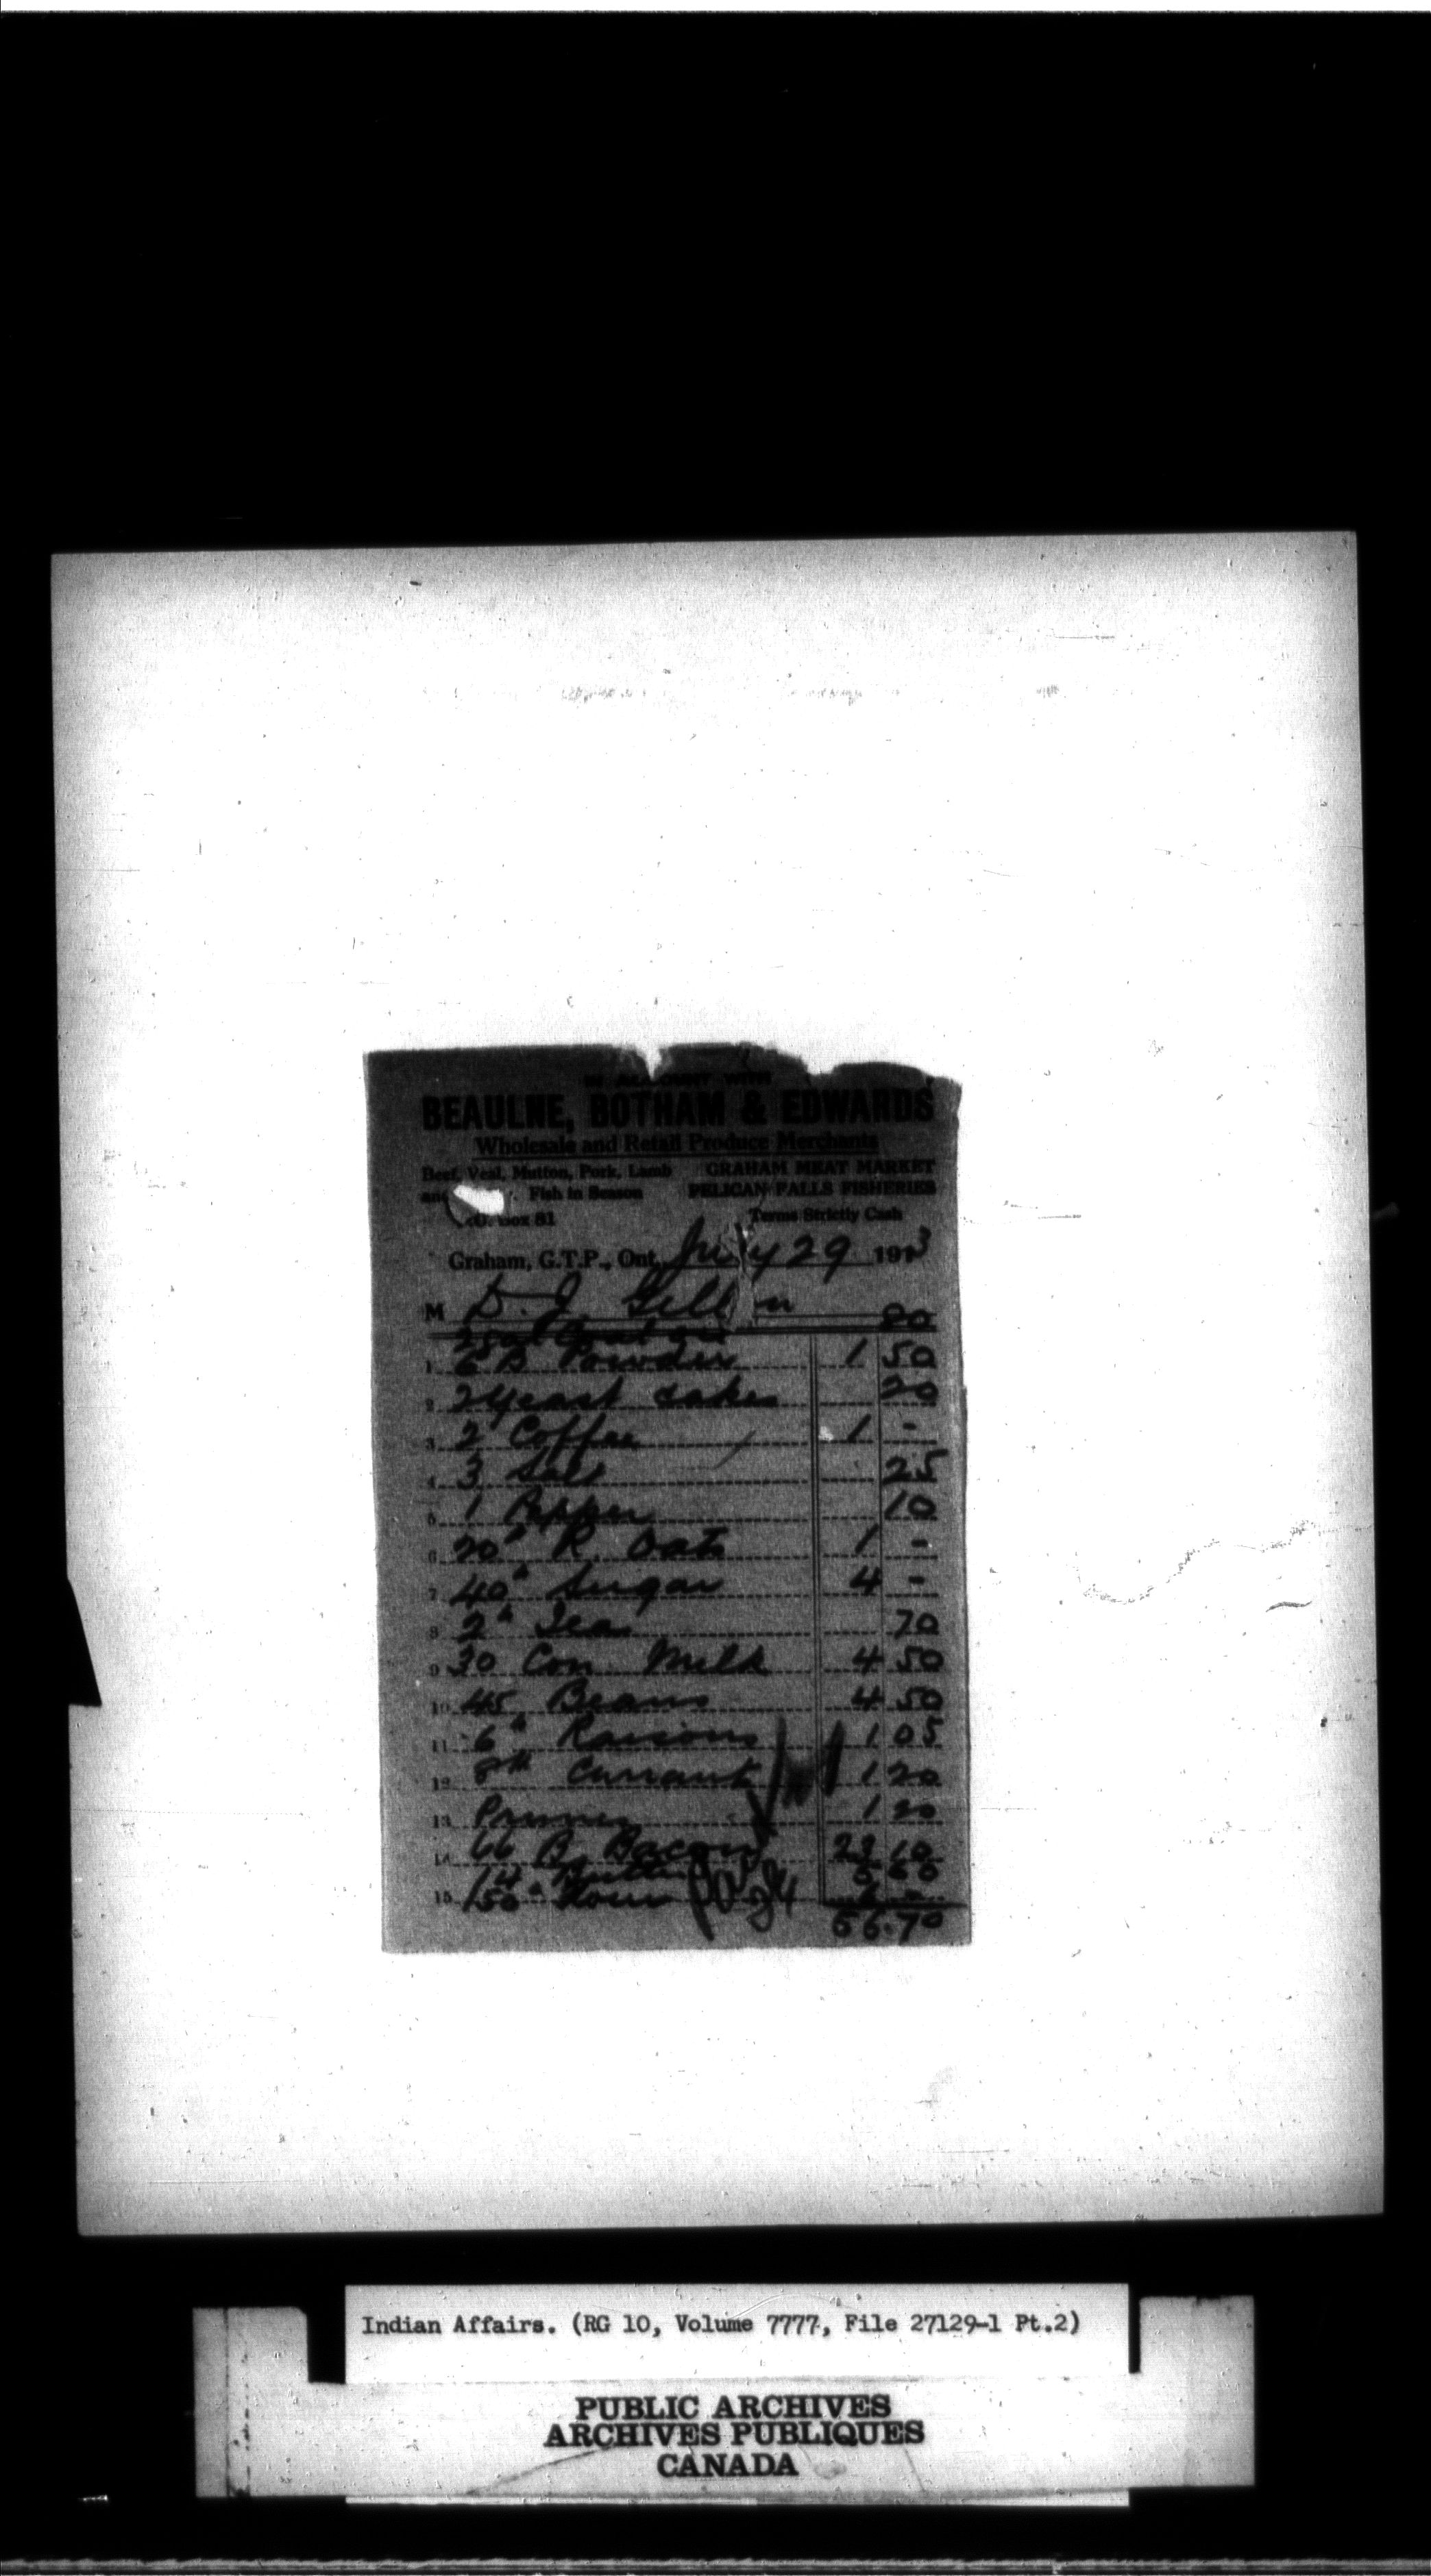 IN ACCOUNT WITH
BEAULNE, BOTHAM & EDWARDS
Wholesale and Retail Produce Merchants
Beef, Veal, Mutton, Pork, Lamb GRAHAM MEAT MARKET
and Fish in Season PELICAN FALLS FISHERIES
Box 81 Terms Strictly Cash
Graham, G.T.P., Ont., July 29 1913
M D. J. Gillon
80
1 6 B Powder 1 50
2 2 Yeast Cakes 20
3 2 Coffee 1 -
4 3 Salt 25
5 1 Pepper 10
6 20# R. Oats 1 -
7 40# Sugar 4 -
8 2# Tea 70
9 30 Con Milk 4 50
10 45 Beans 4 50
11 6# Raisons 1 05
12 8# Currants 1 20
13 Prunes 1 20
14 66 B. Bacon 23 10
14 Butter 5 60
15 150# Flour 6 -
56.70
Indian Affairs. (RG 10, Volume 7777, File 27129-1 Pt.2)
PUBLIC ARCHIVES
ARCHIVES PUBLIQUES
CANADA